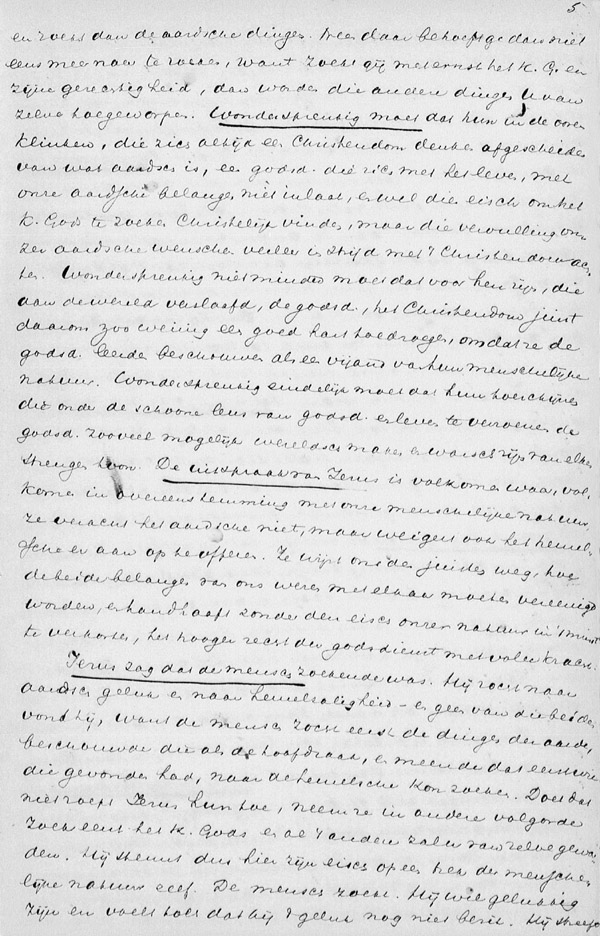 5
en zoekt dan de aardsche dingen. Neen daar behoeft ge dan niet
eens meer naar te zoeken, want zoekt gij met ernst het K. G. en
zijne gerechtigheid, dan worden die andere dingen U van
zelve toegeworpen. Wonderspreukig moet dat hun in de ooren
klinken, die zich altijd een Christendom denken afgescheiden
van wat aardsch is, een godsd. die zich met het leven, met
onze aardsche belangen niet inlaat, en wel die eisch om het
K. Gods te zoeken Christelijk vinden, maar die vervulling on-
zer aardsche wenschen veelen in strijd met 't Christendom ach-
ten. Wonderspreukig niet minder moet dat voor hen zijn, die
aan de wereld verslaafd, de godsd., het Christendom juist
daarom zoo weinig een goed hart toedroegen, omdat ze de
godsd. leerden beschouwen als een vijand van hun menschelijke
natuur. Wonderspreukig eindelijk moet dat hun toeschijnen
die onder de schoone leus van godsd. en leven te verzoenen de
godsd. zooveel mogelijk wereldsch maken en wars zijn van elken
strengen toon. De uitspraak van Jezus is volkomen waar, vol-
komen in overeenstemming met onze menschelijke natuur.
Ze veracht het aardsche niet, maar weigert ook het hemel-
sche er aan op te offeren. Ze wijst ons den juisten weg, hoe
de beide belangen van ons wezen met elkaar moeten vereenigd
worden, en handhaaft zonder den eisch onzer natuur in 't minst
te verkorten, het hooger recht der godsdienst met volle kracht.
Jezus zag dat de mensch zoekende was. Hij zocht naar
aardsch geluk en naar hemelzaligheid - en geen van die beiden
vond hij, want de mensch zocht eerst de dingen der aarde,
beschouwde die als de hoofdzaak, en meende dat eerst wie
die gevonden had, naar de hemelsche kon zoeken. Doet dat
niet roept Jezus hun toe, neem ze in andere volgorde
Zoek eerst het K. Gods en al 't andere zal er van zelve gewor-
den. Hij steunt dus hier zijn eisch op een trek der mensche-
lijke natuur zelf. De mensch zoekt. Hij wil gelukkig
zijn en voelt toch dat hij 't geluk nog niet bezit. Hij streeft